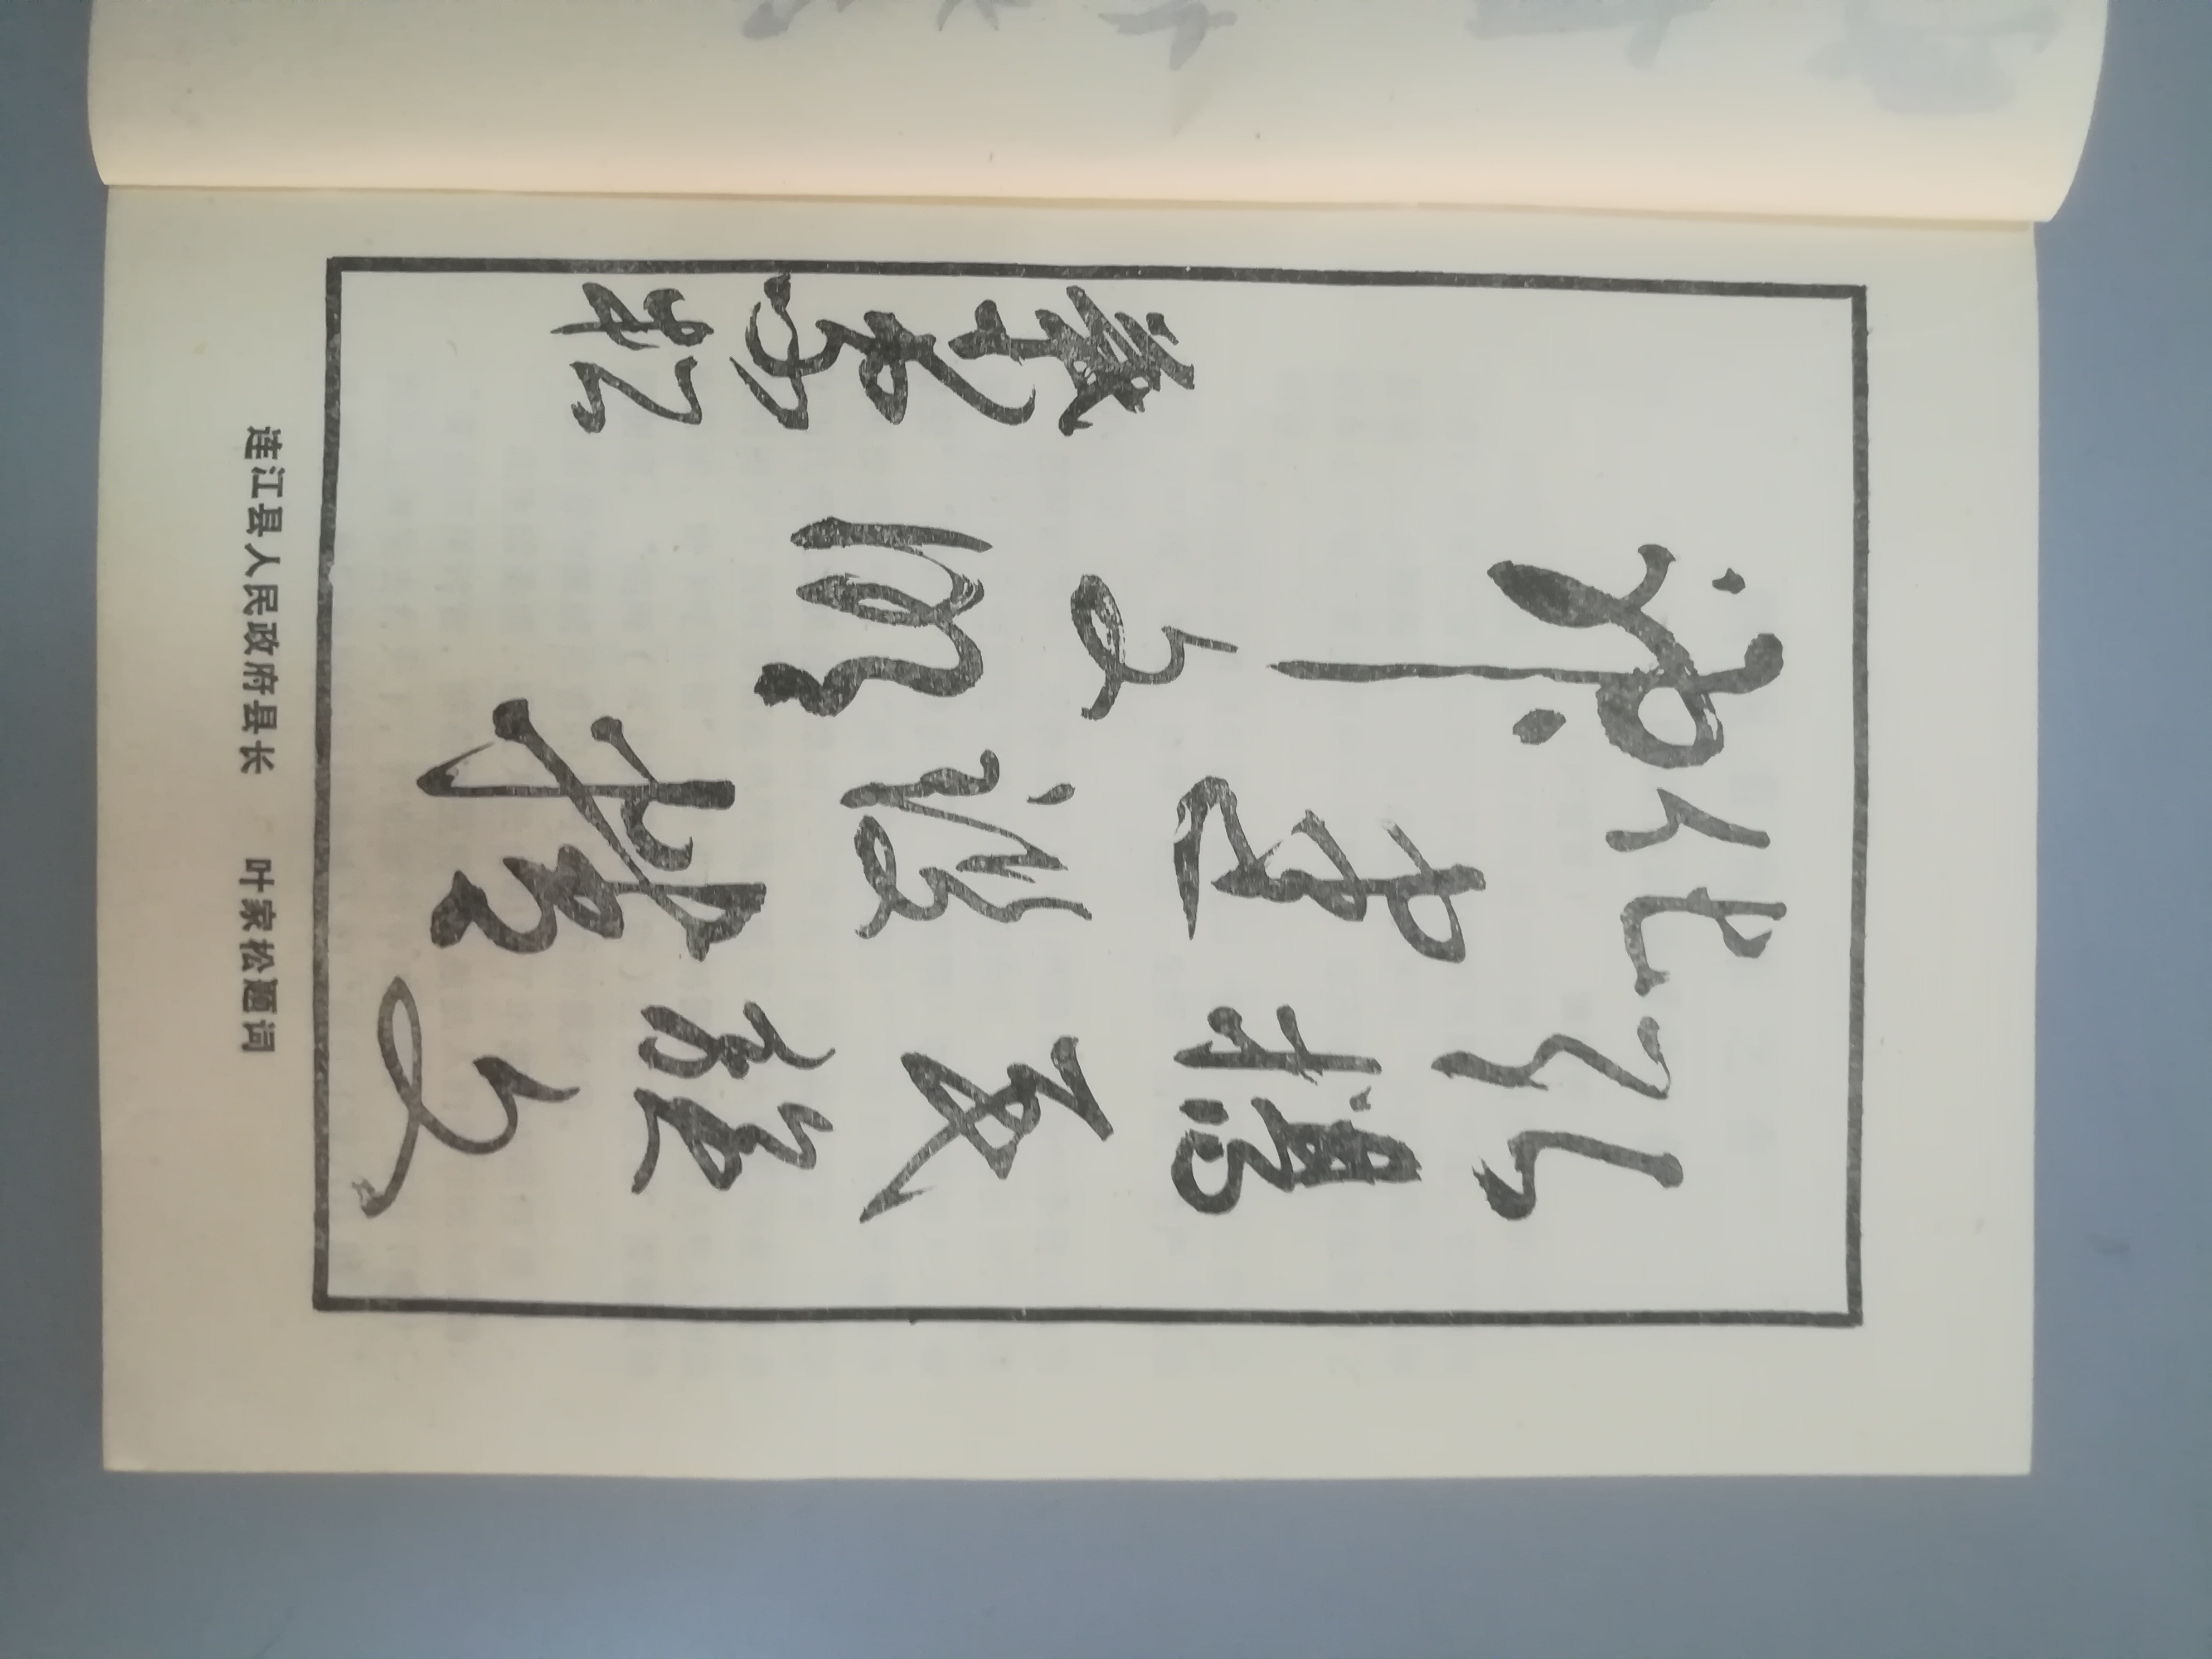 弘揚民族文
化建设精
神文明
葉家松
连江县人民政府县长　　叶家松题词